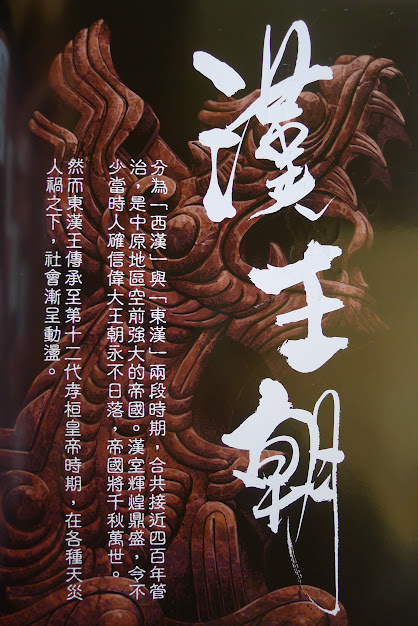 漢王朝
分為「西漢」與「東漢」兩段時期，合共接近四百年管
治，是中原地區空前強大的帝國。漢室輝煌鼎盛，令不
少當時人確信偉大王朝永不日落，帝國將千秋萬世。
然而東漢王傳承至第十一代孝桓皇帝時期，在各種天災
人禍之下，社會漸呈動盪。